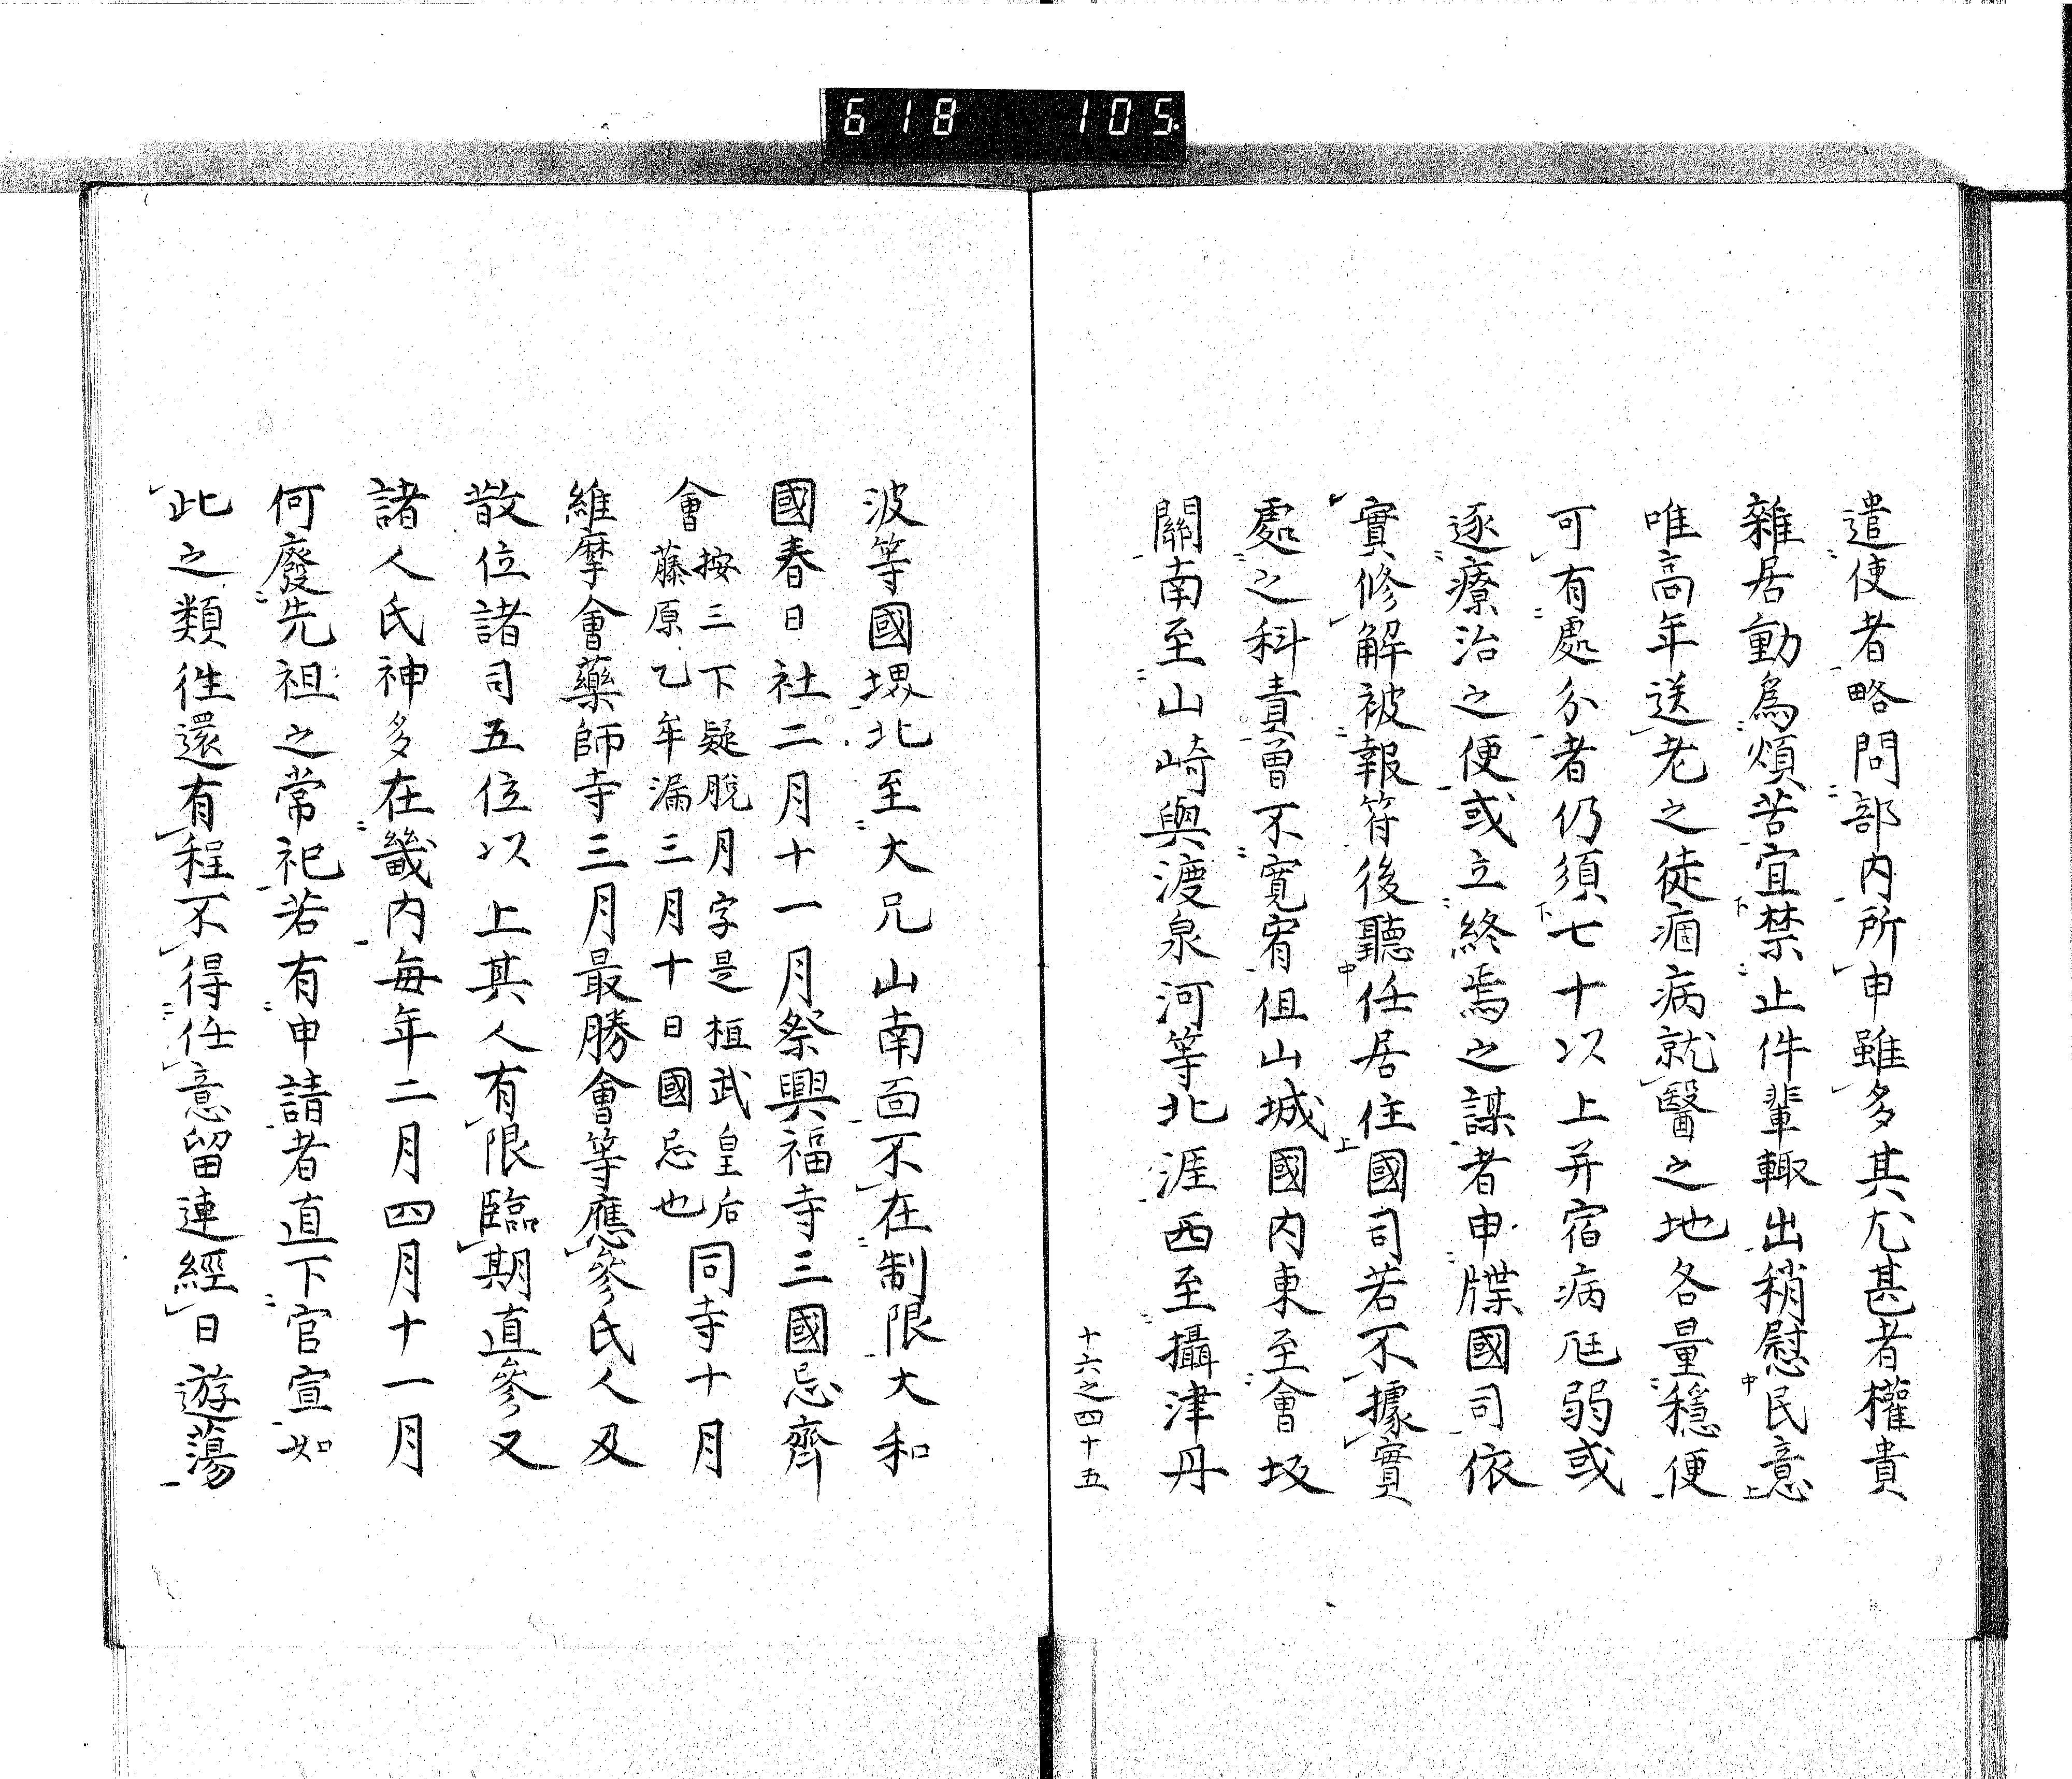 618 105
遣使者略問部内所申雖多其尤甚者權貴
雜居動爲煩苦宜禁止件輩輙出稍慰民意
唯高年送老之徒痼病就醫之地各量穩便
可有處分者仍須七十以上并宿病尫弱或
逐療治之便或立終焉之謀者申牒國司依
實修解被報符後聽任居住國司若不據實
處之科責曽不寛宥但山城國内東至會坂
關南至山崎與渡泉河等北涯西至攝津丹
十六之四十五
波等國堺北至大兄山南面不在制限大和
國春日社二月十一月祭興福寺三國忌齊
會
按三下疑脱月字是桓武皇后
藤原乙牟漏三月十日國忌也
同寺十月
維摩會藥師寺三月最勝會等應參氏人及
散位諸司五位以上其人有限臨期直參又
諸人氏神多在畿内毎年二月四月十一月
何廢先祖之常祀若有申請者直下官宣如
此之類徃還有程不得任意留連經日遊蕩